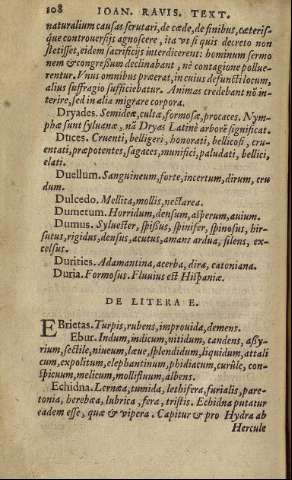 108 IOAN. RAVIS. TEXT.
naturalium causas scrutari, de cæde, de finibus, cæterisq́;
que controversijs agnoscere, ita vt si quis decreto non
stetisset, eidem sacrificijs interdicerent: hominum sermo
nem & congressum declinabant, nè contagione pollue-
rentur. Vnus omnibus præerat, in cuius defuncti locum,
alius suffragio sufficiebatur. Animas credebant nō in-
terire, sed in alia migrare corpora.
Dryades. Semideæ, cultæ, formosæ, procaces. Nym-
phæ sunt syluanæ, nā Dryas Latinè arborē significat.
Duces. Cruenti, belligeri, honorati, bellicosi, cru-
entati, præpotentes, sagaces, munifici, paludati, bellici,
elati.
Duellum. Sanguineum, forte, incertum, dirum, cru
dum.
Dulcedo. Mellita, mollis, nectarea.
Dumetum. Horridum, densum, asperum, auium.
Dumus. Syluester, spissus, spinifer, spinosus, hir-
sutus, rigidus, densus, acutus, amans ardua, silens, ex-
celsus.
Durities. Adamantina, acerba, dira, catoniana.
Duria. Formosus. Fluuius est Hispaniæ.
DE LITERA E.
EBrietas. Turpis, rubens, improuida, demens.
Ebur. Indum, indicum, nitidum, candens, assy-
rium, sectile, niueum, læue, splendidum, liquidum, attali
cum, expolitum, elephantinum, phidiacum, curûle, con-
spicuum, melicum, mollifluum, albens.
Echidna. Lernæa, tumida, lethifera, furialis, paræ-
tonia, herebæa, lubrica, fera, tristis. Echidna putatur
eadem esse, quæ & vipera. Capitur & pro Hydra ab
Hercule